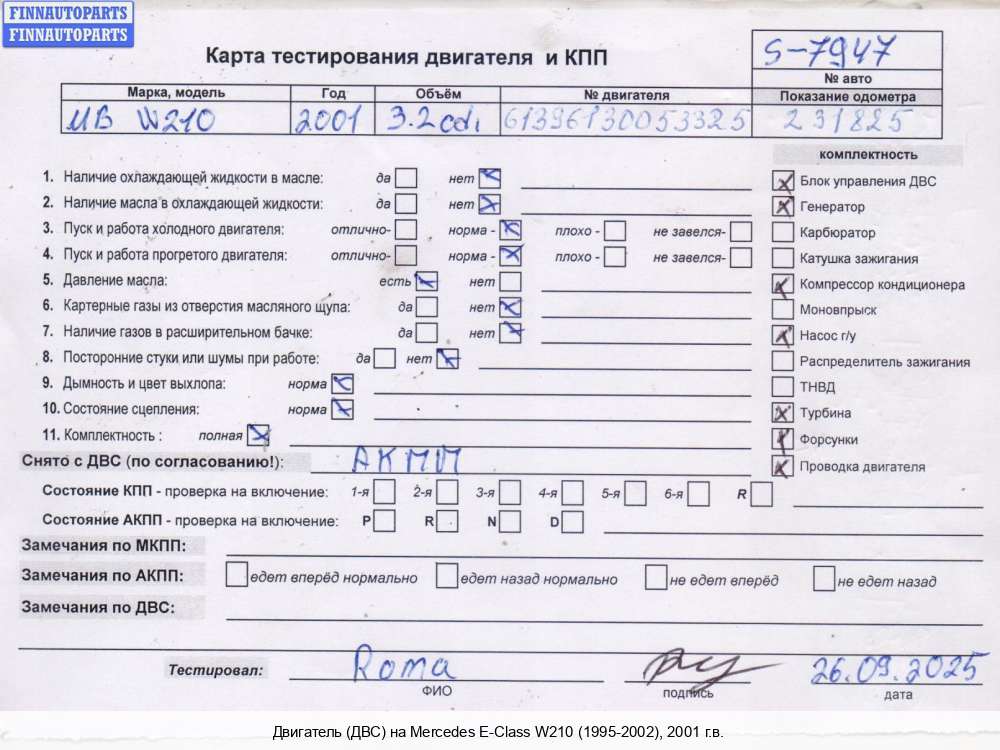 FINNAUTOPARTS
FINNAUTOPARTS
Карта тестирования двигателя и КПП
S-7947
№ авто
Марка, модель Год Объём № двигателя Показание одометра
MB W210 2001 3.2 cdi 61396130053325 231825
комплектность
1. Наличие охлаждающей жидкости в масле: да нет
Блок управления ДВС
2. Наличие масла в охлаждающей жидкости: да нет
Генератор
3. Пуск и работа холодного двигателя: отлично- норма - плохо - не завелся-
Карбюратор
4. Пуск и работа прогретого двигателя: отлично- норма - плохо - не завелся-
Катушка зажигания
5. Давление масла: есть нет
Компрессор кондиционера
6. Картерные газы из отверстия масляного щупа: да нет
Моновпрыск
7. Наличие газов в расширительном бачке: да нет
Насос г/у
8. Посторонние стуки или шумы при работе: да нет
Распределитель зажигания
9. Дымность и цвет выхлопа: норма
ТНВД
10. Состояние сцепления: норма
Турбина
11. Комплектность : полная
Форсунки
Снято с ДВС (по согласованию!): АКПП
Проводка двигателя
Состояние КПП - проверка на включение: 1-я 2-я 3-я 4-я 5-я 6-я R
Состояние АКПП - проверка на включение: P R N D
Замечания по МКПП:
Замечания по АКПП: едет вперёд нормально едет назад нормально не едет вперёд не едет назад
Замечания по ДВС:
Тестировал: Roma 26.09.2025
ФИО подпись дата
Двигатель (ДВС) на Mercedes E-Class W210 (1995-2002), 2001 г.в.